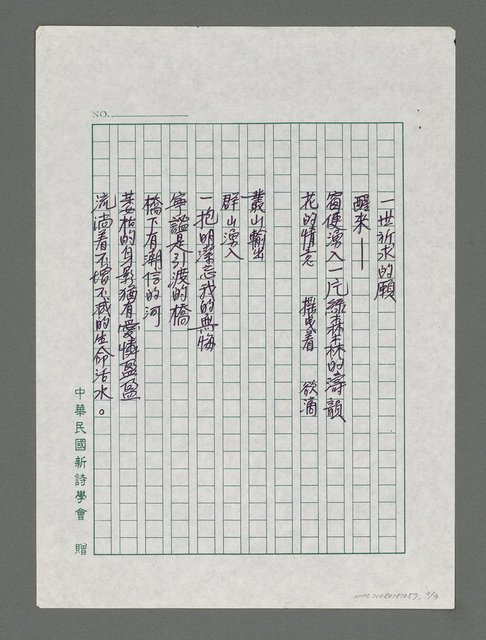 NO.
一世祈求的願
醒來——
窗便湧入一片綠森森的濤韻
花的情意 搖曳着 欲滴
叢山輸出
群山湧入
一抱明潔忘我的無悔
寧謐是引渡的橋
橋下有潮信的河
萎枯的身影猶有愛憐盈盈
流淌着不增不減的生命活水。
中華民國新詩學會 贈
3/3